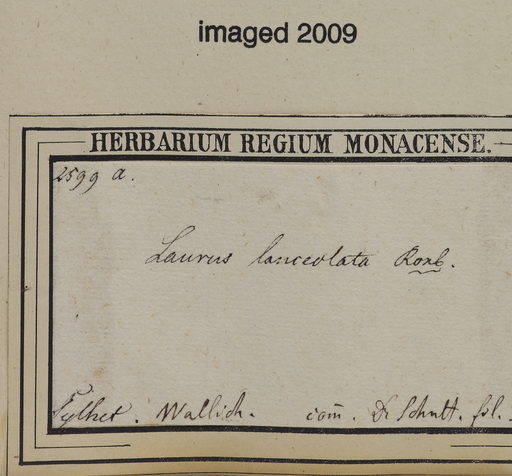 imaged 2009
HERBARIUM REGIUM MONACENSE.
2599 a.
Laurus lanceolata Roxb.
Sylhet. Wallich. com̄. Dr Schult. fil.